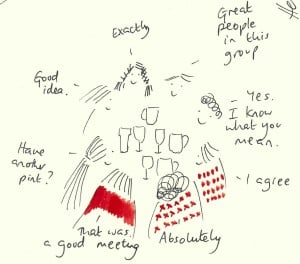 Great
people
in this
group
Exactly
Good
idea.
Yes.
I know
what you
mean.
Have
another
pint?
I agree
That was
a good meeting
Absolutely